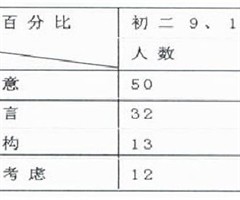 百分比 初二9、1
人数
意 50
言 32
构 13
考虑 12